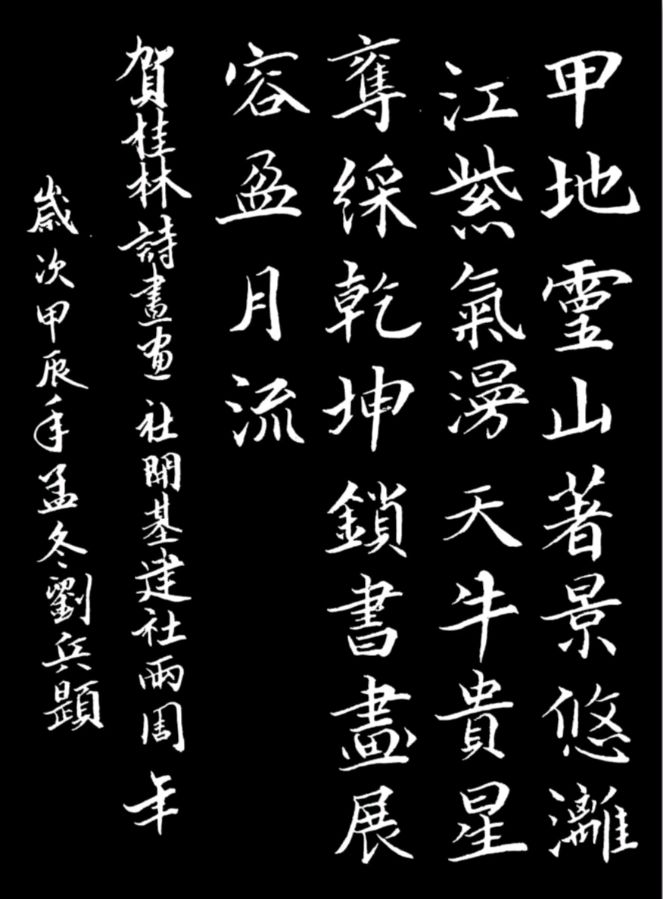 甲地靈山著景悠灕
江紫氣漫天牛貴星
奪綵乾坤鎖書畫展
容盈月流
賀桂林詩書畫社開基建社兩周年
歲次甲辰年孟冬劉兵題